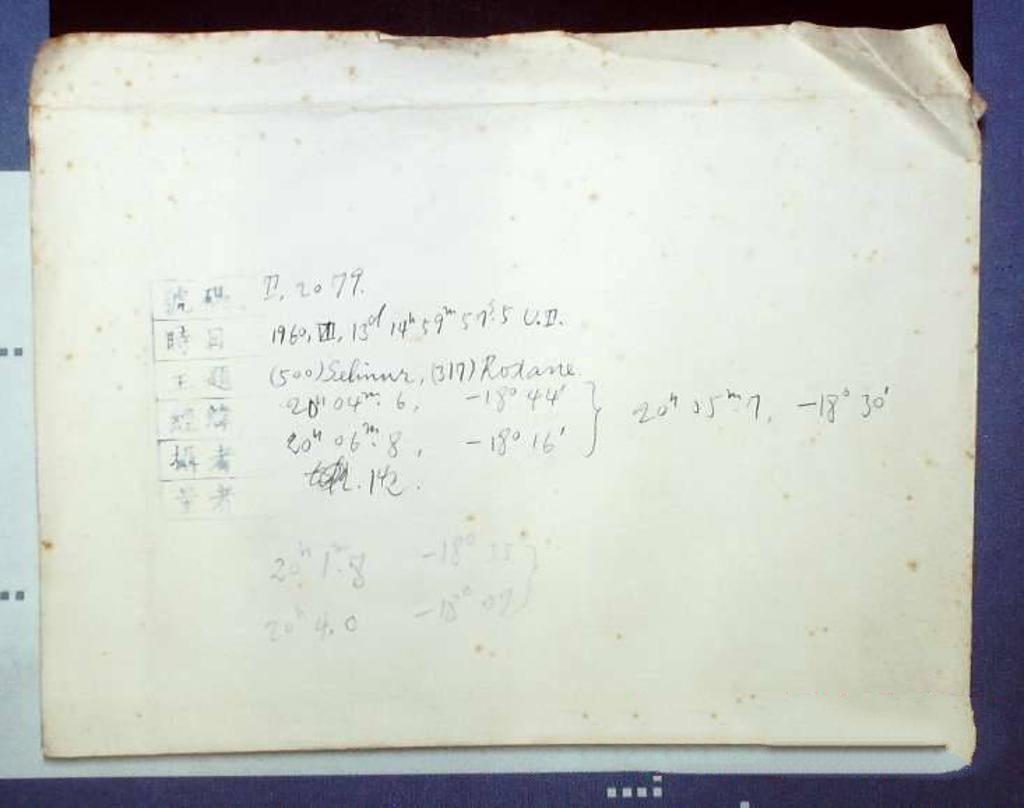 號碼 II, 2079.
時日 1960, VII, 13d 14h 59m 57s.5 U.T.
主題 (500) Selinur, (317) Roxane.
經緯 20h 04m.6, -18° 44'
20h 06m.8, -18° 16' } 20h 05m.7, -18° 30'
攝者 142.
景者
20h 1m.8 -18° 35
20h 4.0 -18° 07 }